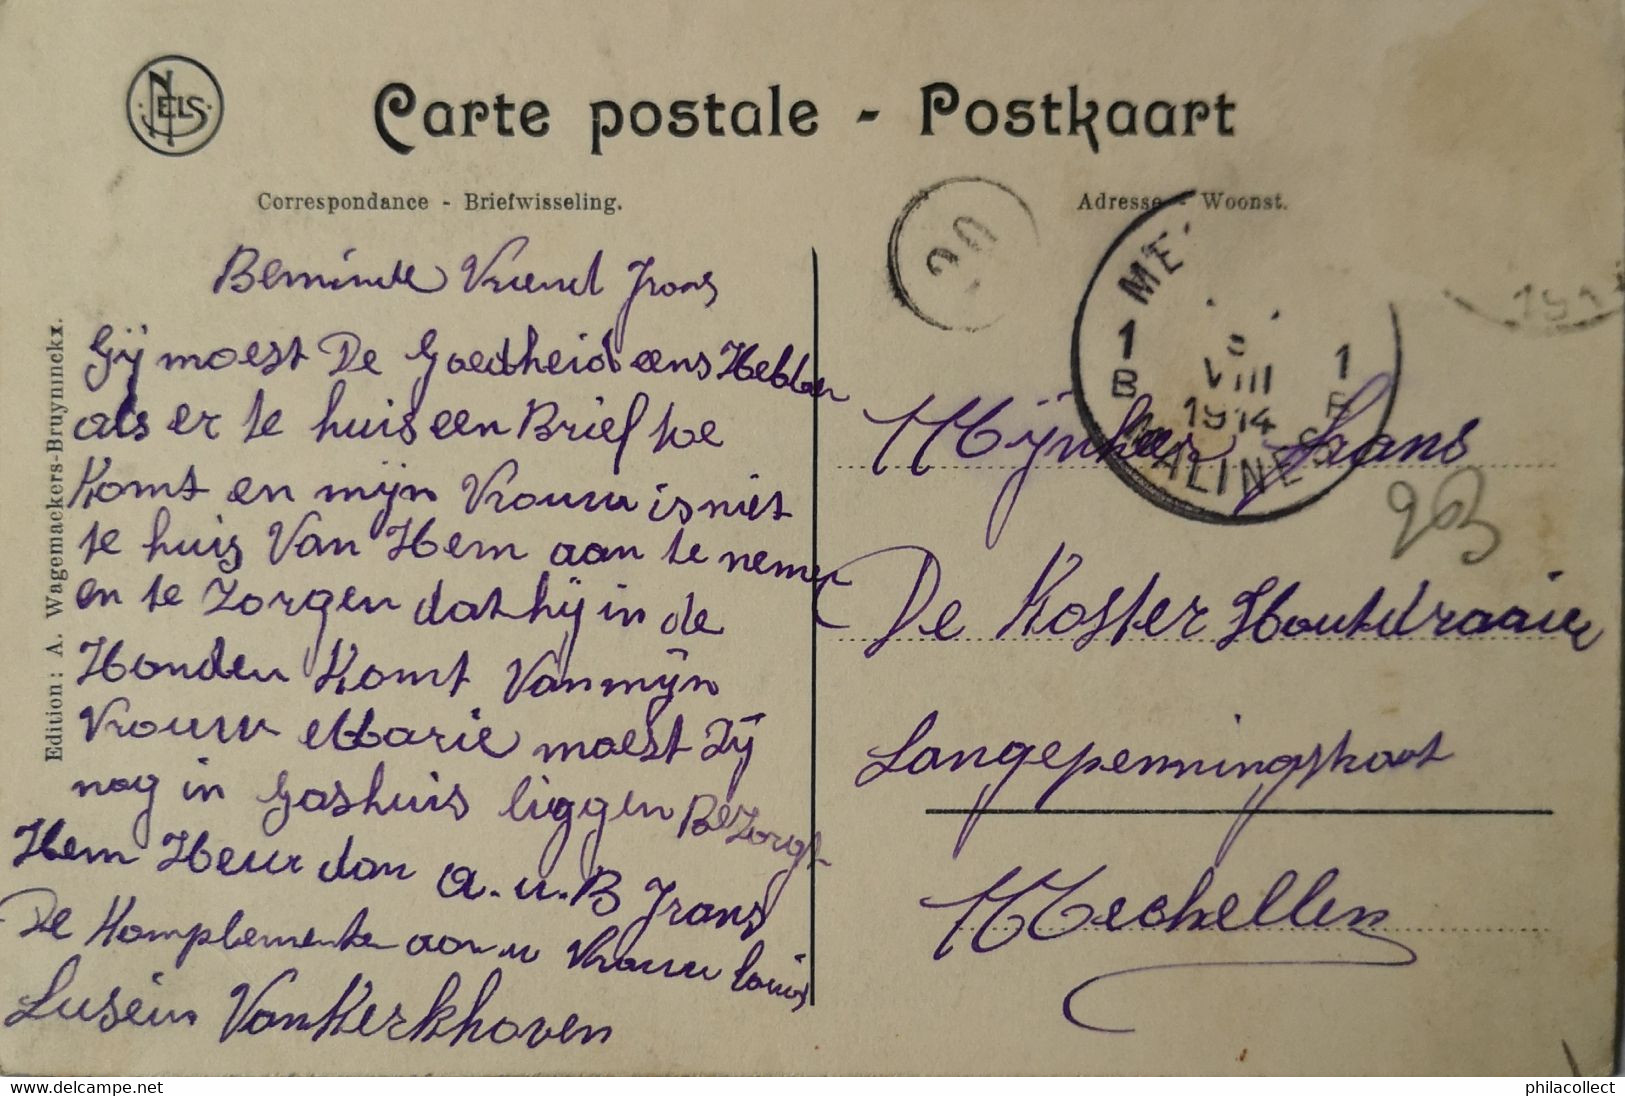 NELS
Carte postale - Postkaart
Correspondance - Briefwisseling.
Adresse - Woonst.
Edition: A. Wagemackers-Bruyninckx.
Beminde Vriend Frans
Gij moest De Goedheid eens Hebben
als er te huis een Brief toe
Komt en mijn Vrouw is niet
te huis Van Hem aan te nemen
en te Zorgen dat hij in de
Handen Komt Van mijn
Vrouw Marie moest Zij
nog in Gashuis liggen BeZorgt
Hem Heur dan a.u.B Frans
De Komplementen aan u Vrouw louis
Lusein VanKerkhoven
20
ME
1 1
VIII
B B
1914
MALINES
191
Mijnheer Frans
De Koster Houtdraaier
Langepenningstraat
Mechellen
philacollect
Delcampe.net